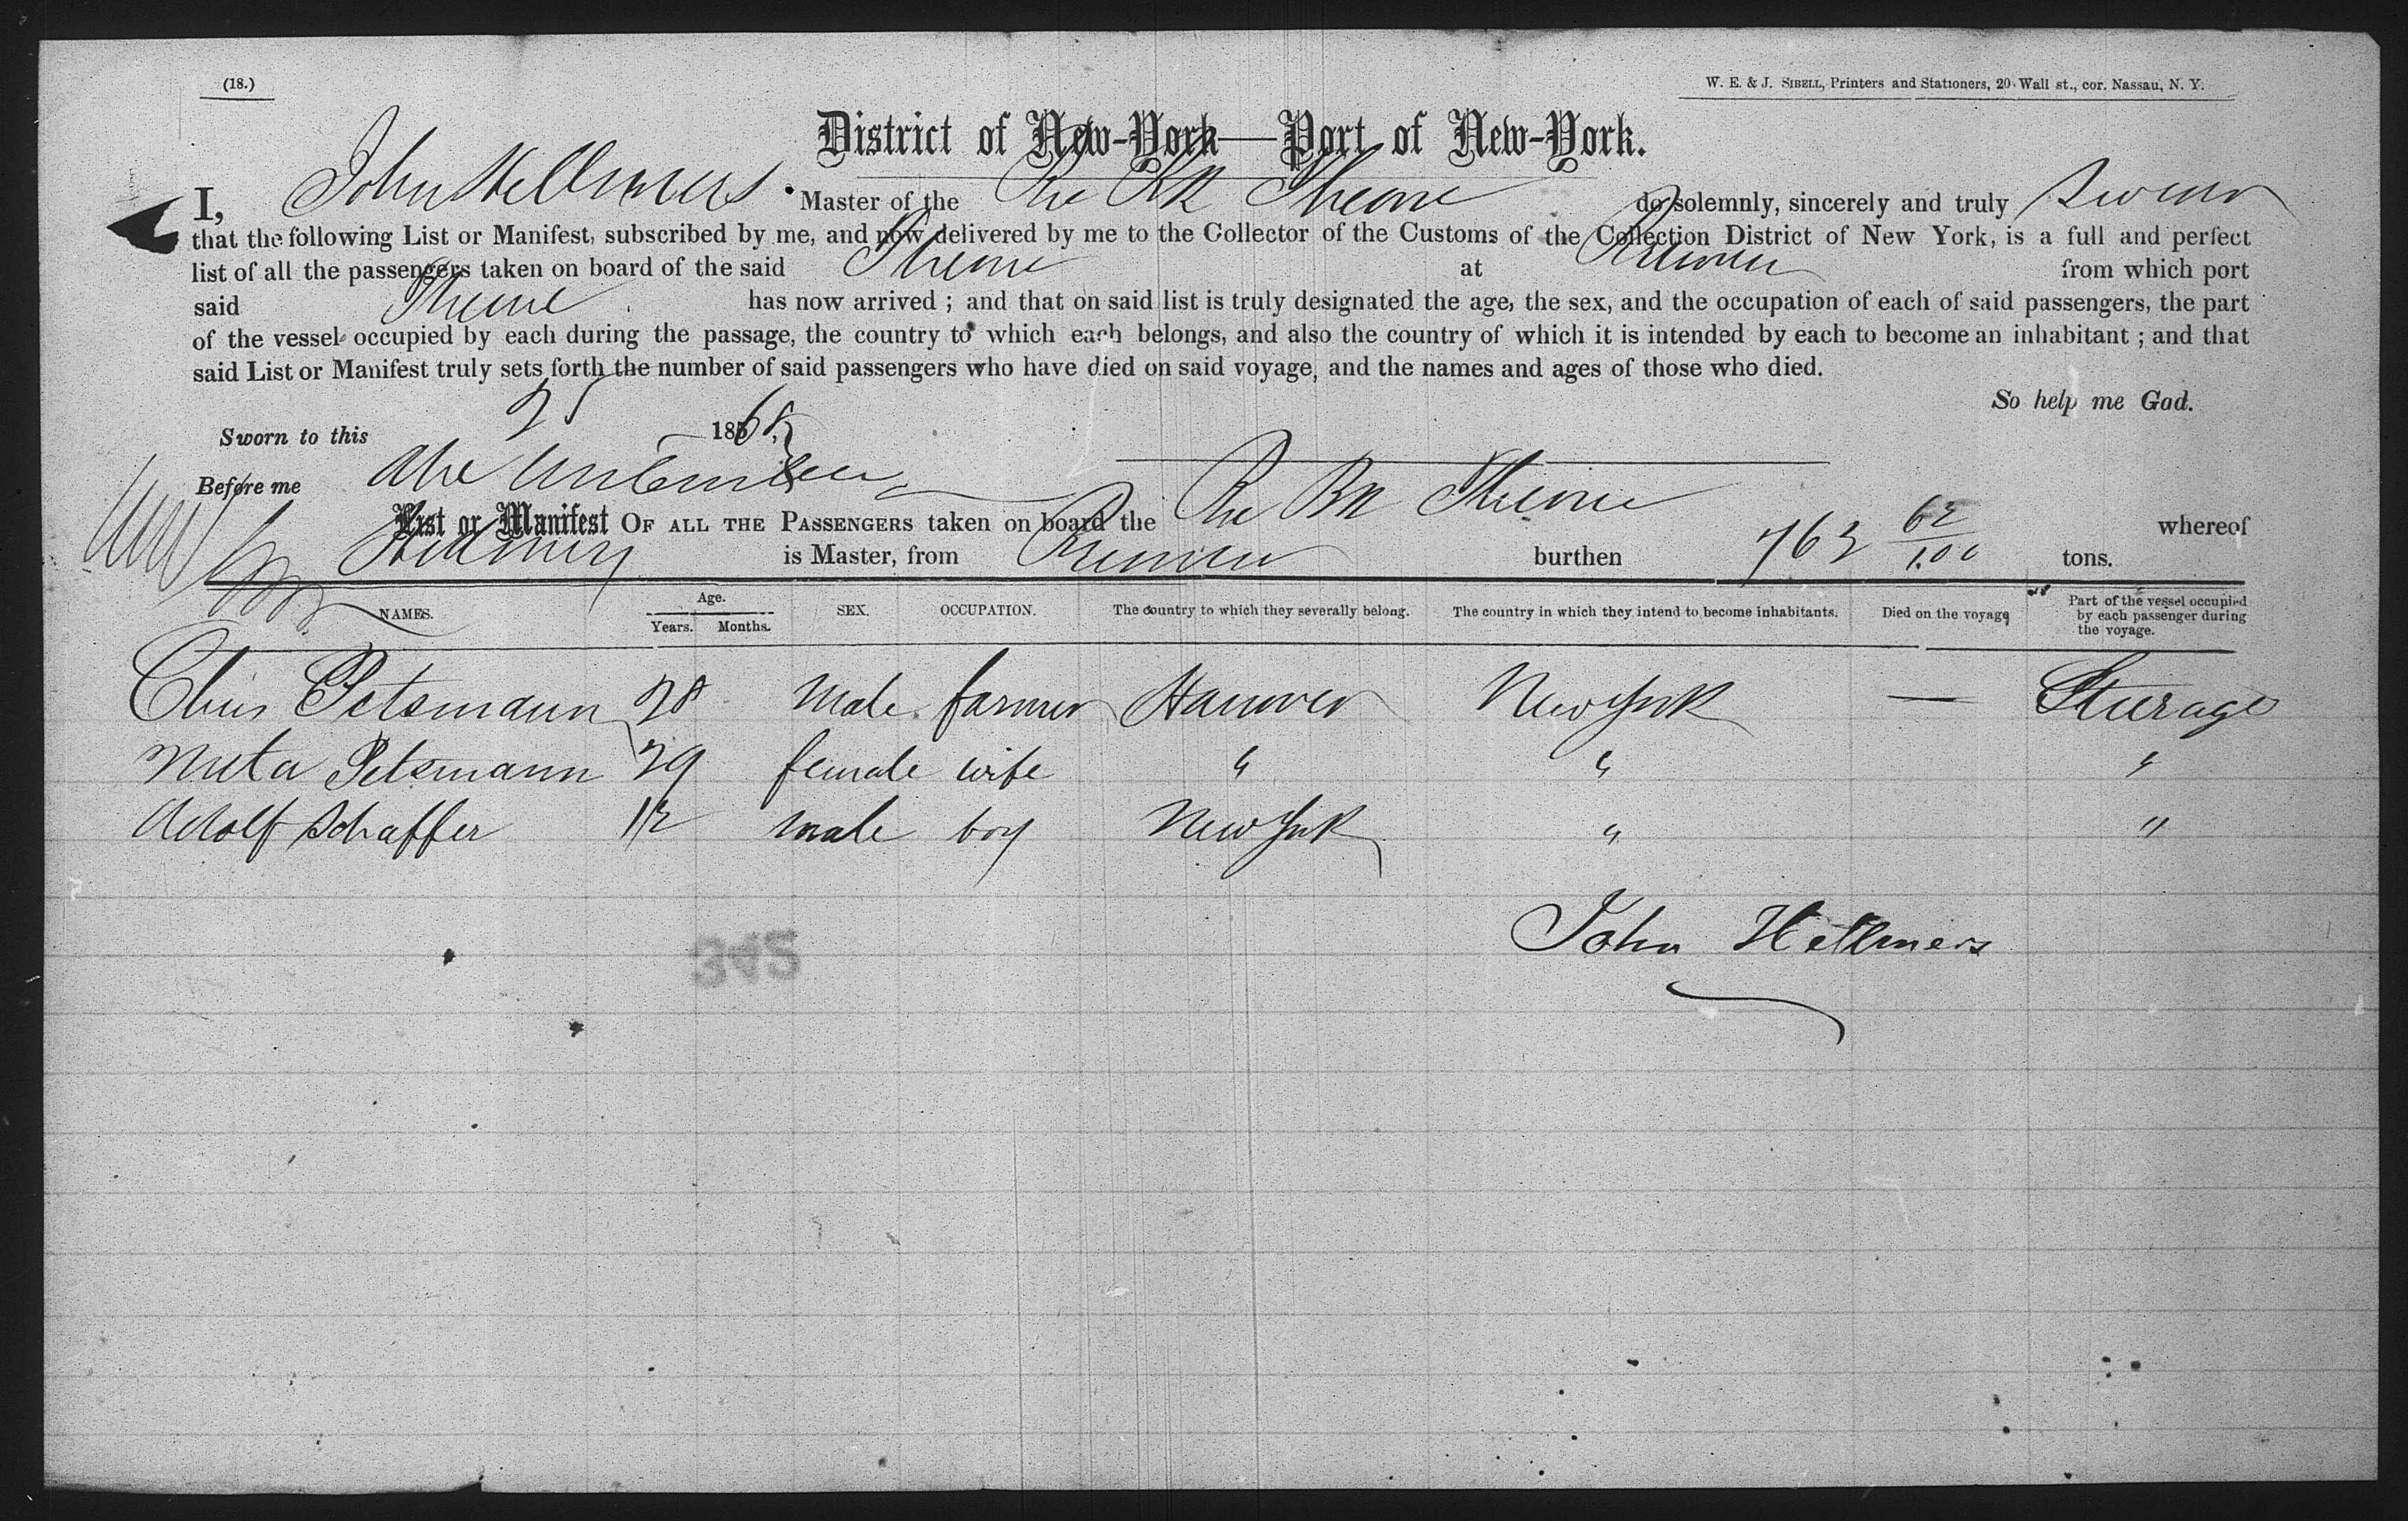 (18.)
W. E. & J. SIBELL, Printers and Stationers, 20 Wall st., cor. Nassau, N. Y.
District of New-York—Port of New-York.
I, John Hellmers Master of the Bre Bk Theone do solemnly, sincerely and truly swear
that the following List or Manifest, subscribed by me, and now delivered by me to the Collector of the Customs of the Collection District of New York, is a full and perfect
list of all the passengers taken on board of the said Theone at Bremen from which port
said Theone has now arrived ; and that on said list is truly designated the age, the sex, and the occupation of each of said passengers, the part
of the vessel occupied by each during the passage, the country to which each belongs, and also the country of which it is intended by each to become an inhabitant ; and that
said List or Manifest truly sets forth the number of said passengers who have died on said voyage, and the names and ages of those who died.
So help me God.
Sworn to this 25 1868
Before me
List or Manifest OF ALL THE PASSENGERS taken on board the Bre Bk Theone whereof
Hellmers is Master, from Bremen burthen 763 62/100 tons.
NAMES. Age. Years. Months. SEX. OCCUPATION. The country to which they severally belong. The country in which they intend to become inhabitants. Died on the voyage Part of the vessel occupied by each passenger during the voyage.
Chris Petsmann 28 male farmer Hanover New York — Steerage
Meta Petsmann 29 female wife " " "
Adolf Schaffer male boy New York " "
John Hellmers